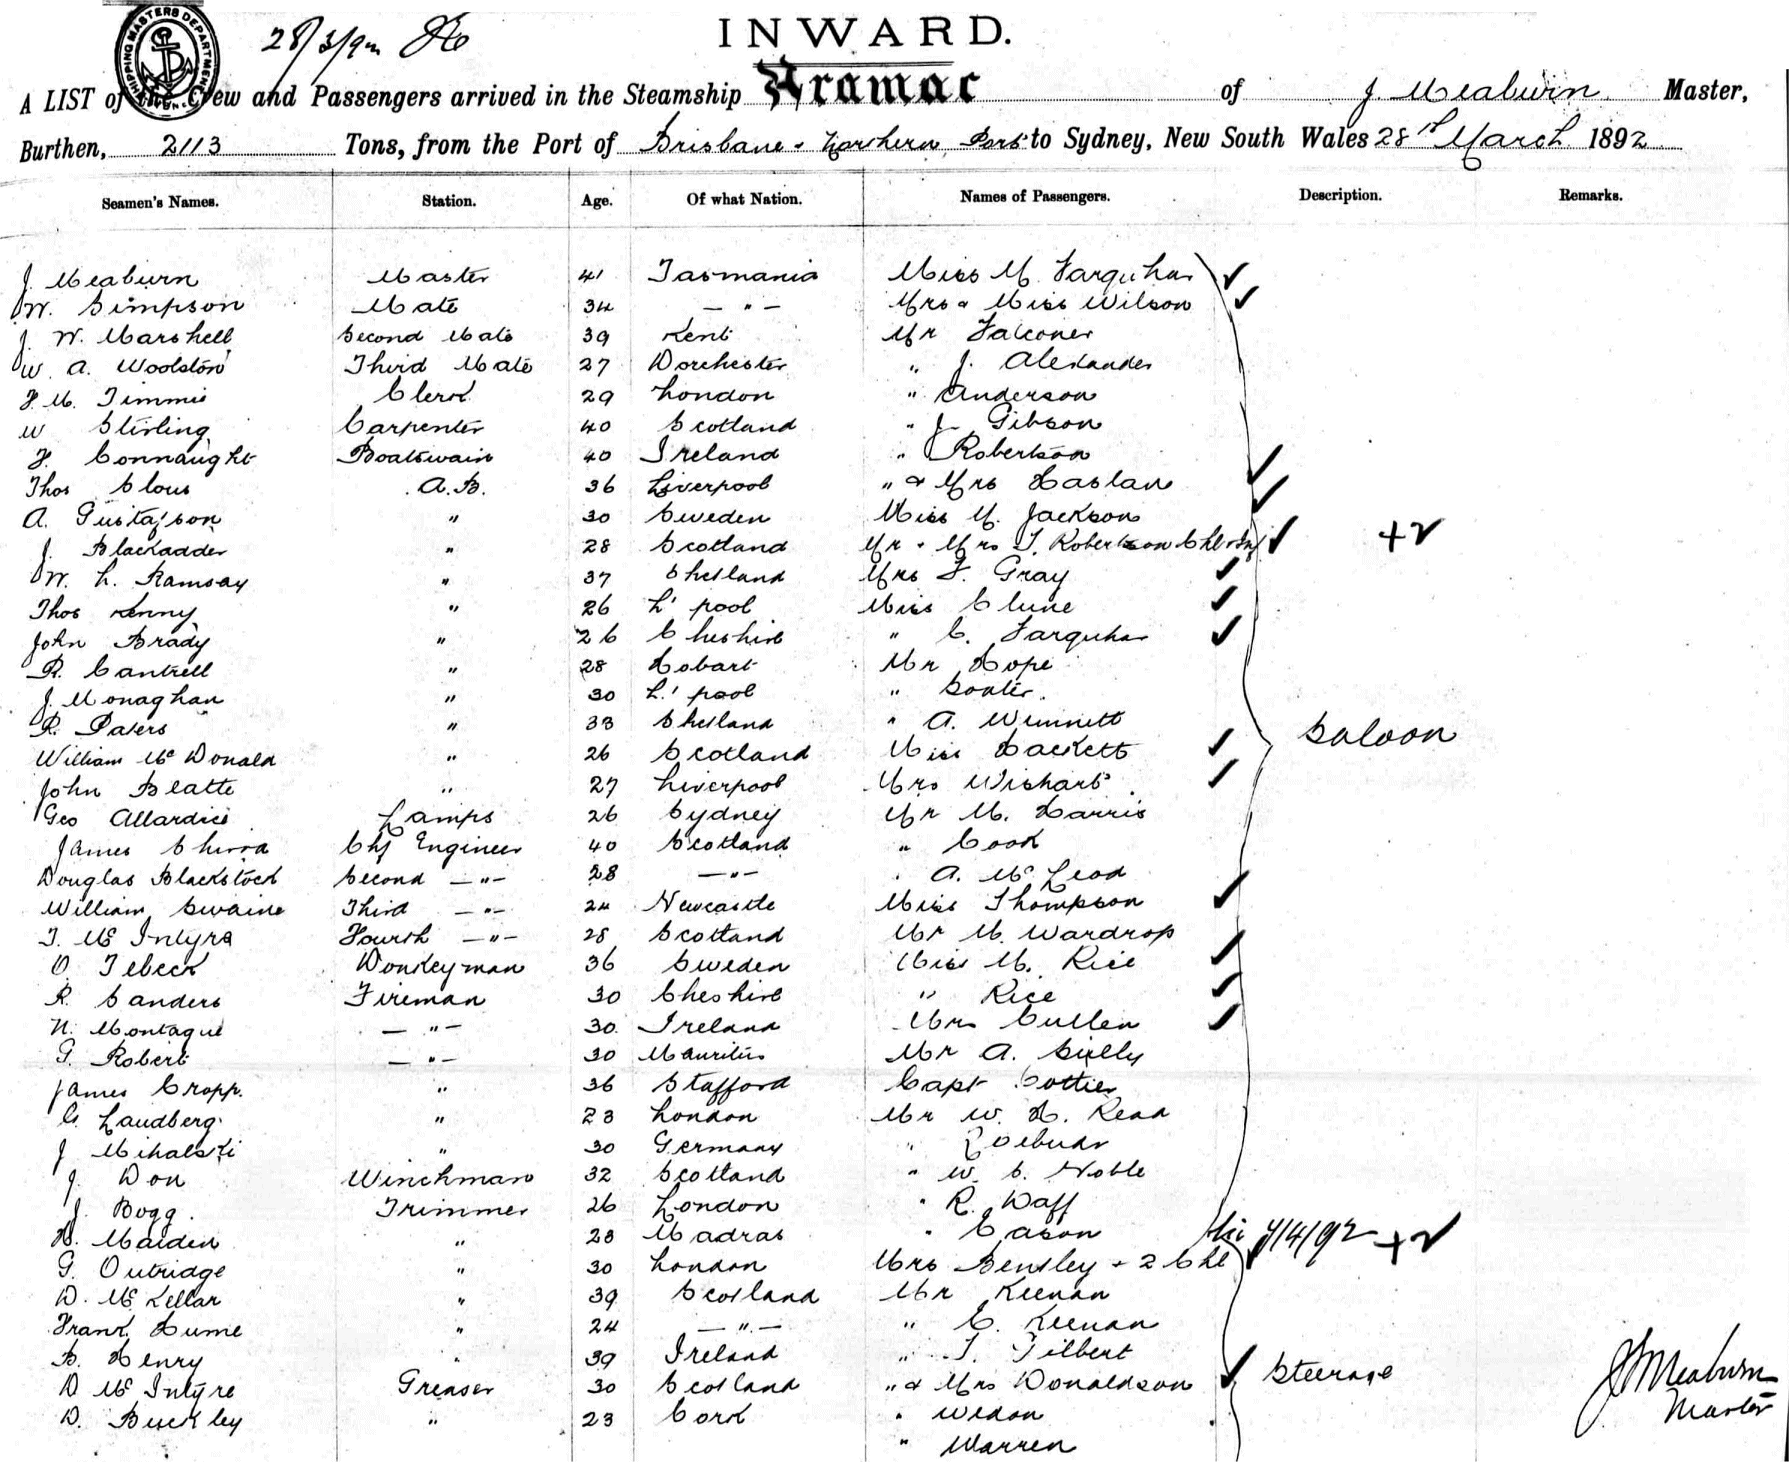 SHIPPING MASTERS DEPARTMENT
28/3/92
INWARD.
A LIST of the Crew and Passengers arrived in the Steamship Aramac of J. Meaburn Master,
Burthen, 2113 Tons, from the Port of Brisbane & Northern Ports to Sydney, New South Wales 28th March 1892
Seamen's Names. Station. Age. Of what Nation. Names of Passengers. Description. Remarks.
J. Meaburn Master 41 Tasmania Miss M. Farquhar
W. Simpson Mate 34 — " — Mrs & Miss Wilson
J. W. Marshell Second Mate 39 Kent Mr Falconer
W. A. Woolston Third Mate 27 Dorchester " J. Alexander
F. M. Timmis Clerk 29 London " Anderson
W Stirling Carpenter 40 Scotland " J. Gibson
F. Connaught Boatswain 40 Ireland " Robertson
Thos Clous A.B. 36 Liverpool " & Mrs Haslam
A. Gustafson " 30 Sweden Miss M. Jackson
J. Blackadder " 28 Scotland Mr & Mrs T. Robertson Chl & Inf +2
W. L. Ramsay " 37 Shetland Mrs F. Gray
Thos Kenny " 26 L'pool Miss Clune
John Brady " 26 Cheshire " C. Farquhar
R. Cantrell " 28 Hobart Mr Hope
J. Monaghan " 30 L'pool "
R. Paters " 33 Shetland " A. Wunnett
William McDonald " 26 Scotland Miss Hackett Saloon
John Beatte " 27 Liverpool Mrs Wishart
Geo Allardice Lamps 26 Sydney Mr M. Harris
James Shirra Chf Engineer 40 Scotland " Cook
Douglas Blackstock Second — " — 28 — " — " A. McLeod
William Swaine Third — " — 24 Newcastle Miss Thompson
T. McIntyre Fourth — " — 28 Scotland Mr M. Wardrop
O. Tebeck Donkeyman 36 Sweden Miss M. Rice
R. Sanders Fireman 30 Cheshire " Rice
N. Montague — " — 30 Ireland Mrs Cullen
G. Robert — " — 30 Mauritius Mr A. Sielly
James Cropp. " 36 Stafford Capt Cottier
C. Laudberg " 23 London Mr W. H. Read
J. Mihalski " 30 Germany " Roebuck
J. Don Winchman 32 Scotland " W. S. Noble
J. Bogg. Trimmer 26 London " R. Waff
H. Maiden " 28 Madras " Eason 7/4/92 +2
G. Outridge " 30 London Mrs Bentley + 2 Chl
D. McKellar " 39 Scotland Mr Keenan
Frank Hume " 24 — " — " C. Keenan
B. Henry " 39 Ireland " T. Gilbert
D McIntyre Greaser 30 Scotland " & Mrs Donaldson Steerage J Meaburn
D. Buckley " 23 Cork " Wedon Master
" Warren